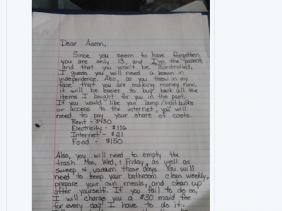 Dear Aaron,
Since you seem to have forgotten
you are only 13, and I'm the parent,
and that you won't be controlled,
I guess you will need a lesson in
independence. Also, as you threw in my
face that you are making money now,
it will be easier to buy back all the
items I bought for you in the past.
If you would like your lamp/lightbulbs
or access to the internet, you will
need to pay your share of costs.
Rent - $430
Electricity - $116
Internet - $21
Food - $150
Also, you will need to empty the
trash Mon, Wed, Friday, as well as
sweep & vacuum those days. You will
need to keep your bathroom clean weekly,
prepare your own meals, and clean up
after yourself. If you fail to do so,
I will charge you a $30 maid fee
for every day I have to do it.